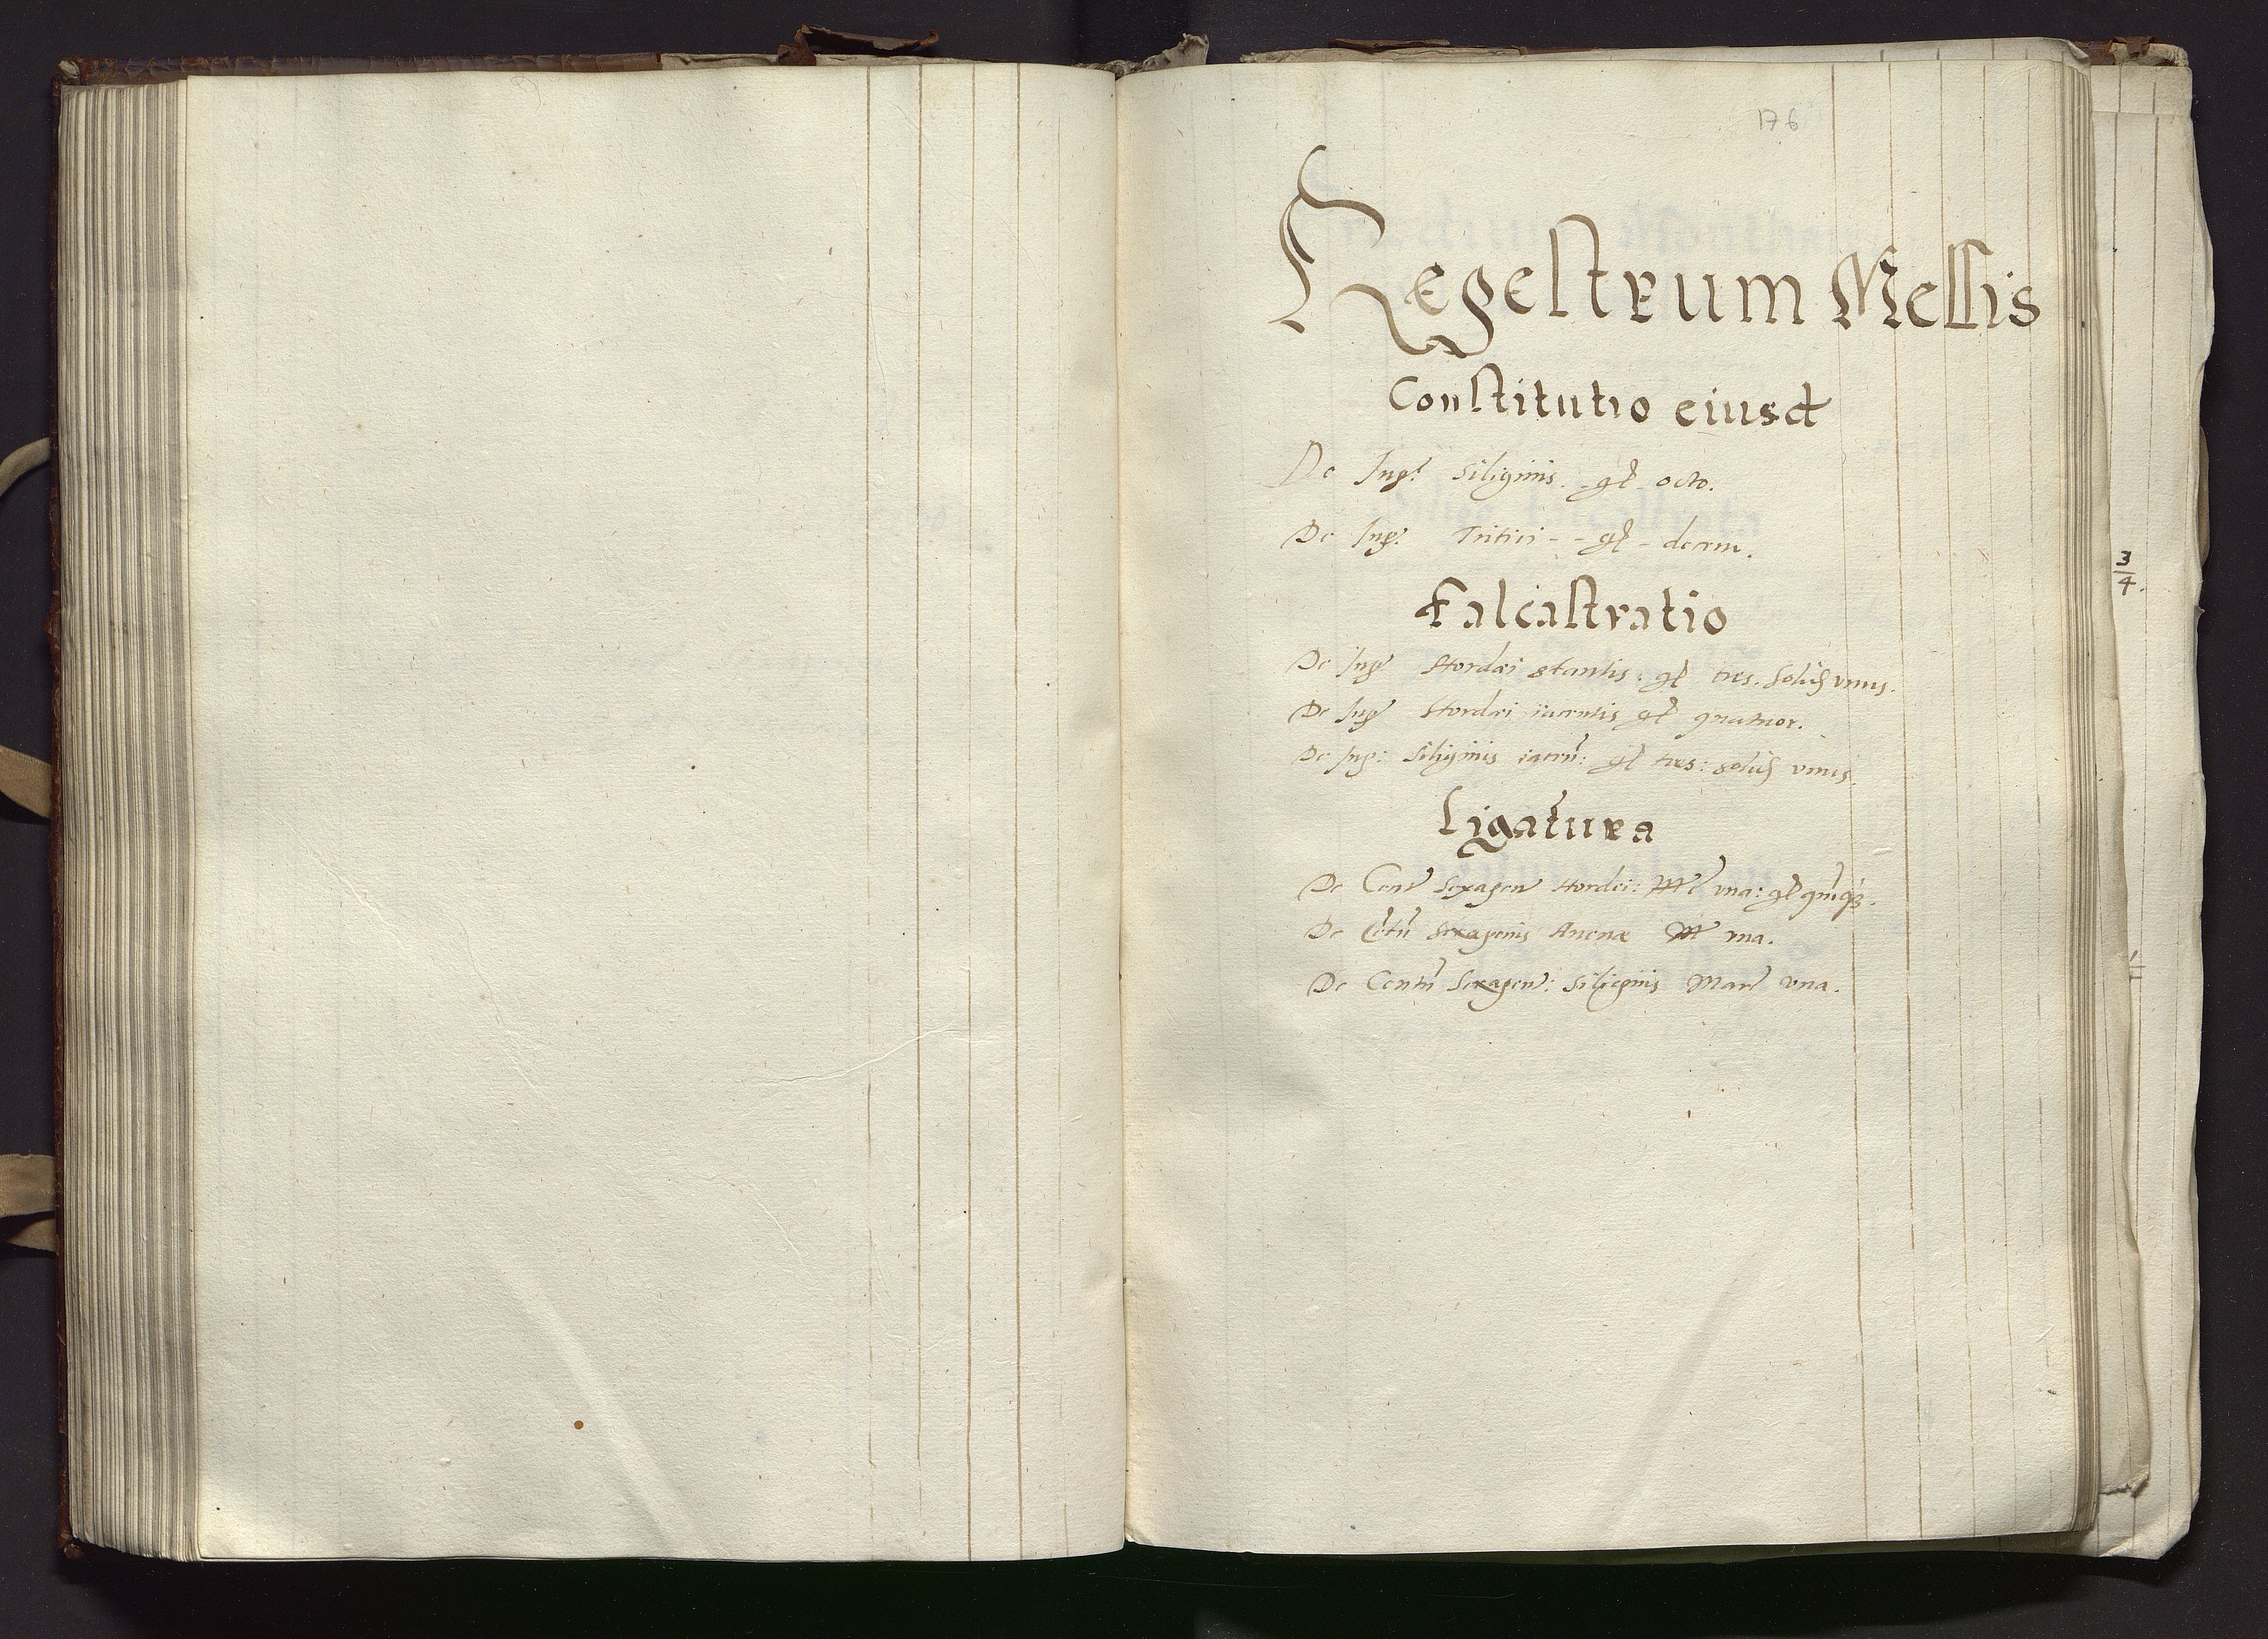 176
Regestrum Mellis
Constitutio eiusd
De Jug: Siliginis - gl - octo.
De Jug: Tritici - - gl - decem.
Falcastratio
De Jug Hordæi stantis: gl tres. Solid vnus.
De Jug Hordæi iacentis gl quatuor.
De Jug: Siliginis iacen: gl tres: solid vnus.
Ligatura
De Cent Sexagen Hordei: M vna: gl quinq3.
De Cētū Sexagenis Auenæ M vna.
De Centū Sexagen: Siliginis Mar vna.
3
4.